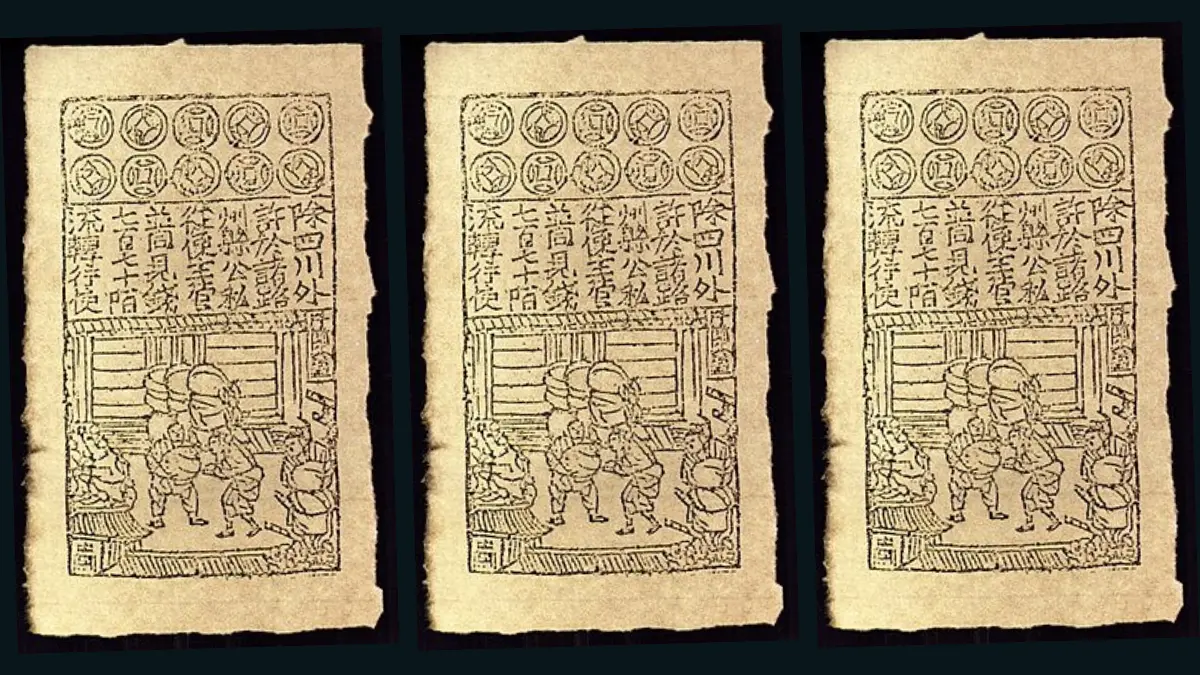 除四川外
許於諸路
州縣公私
從便主管
並同見錢
七百七十陌
流轉行使
除四川外
許於諸路
州縣公私
從便主管
並同見錢
七百七十陌
流轉行使
除四川外
許於諸路
州縣公私
從便主管
並同見錢
七百七十陌
流轉行使